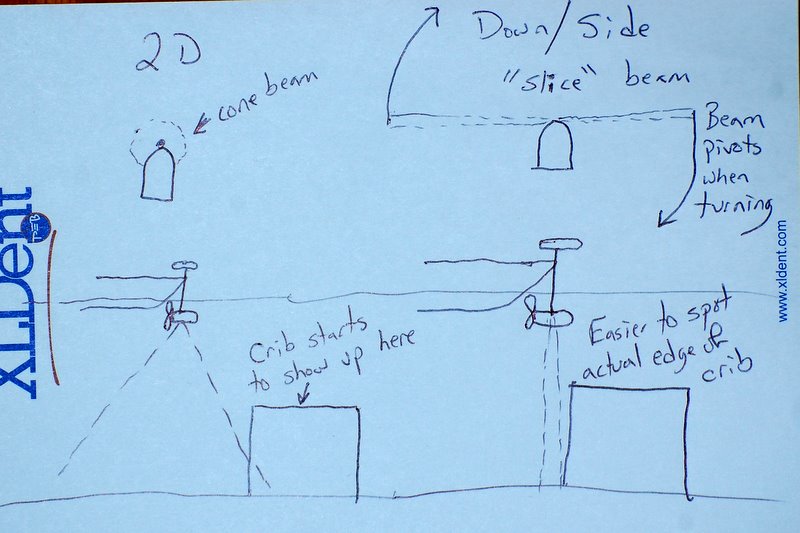 2D
cone beam
Down/Side
"slice" beam
Beam
pivots
when
turning
Crib starts
to show up here
Easier to spot
actual edge of
crib
XLDent
www.xldent.com